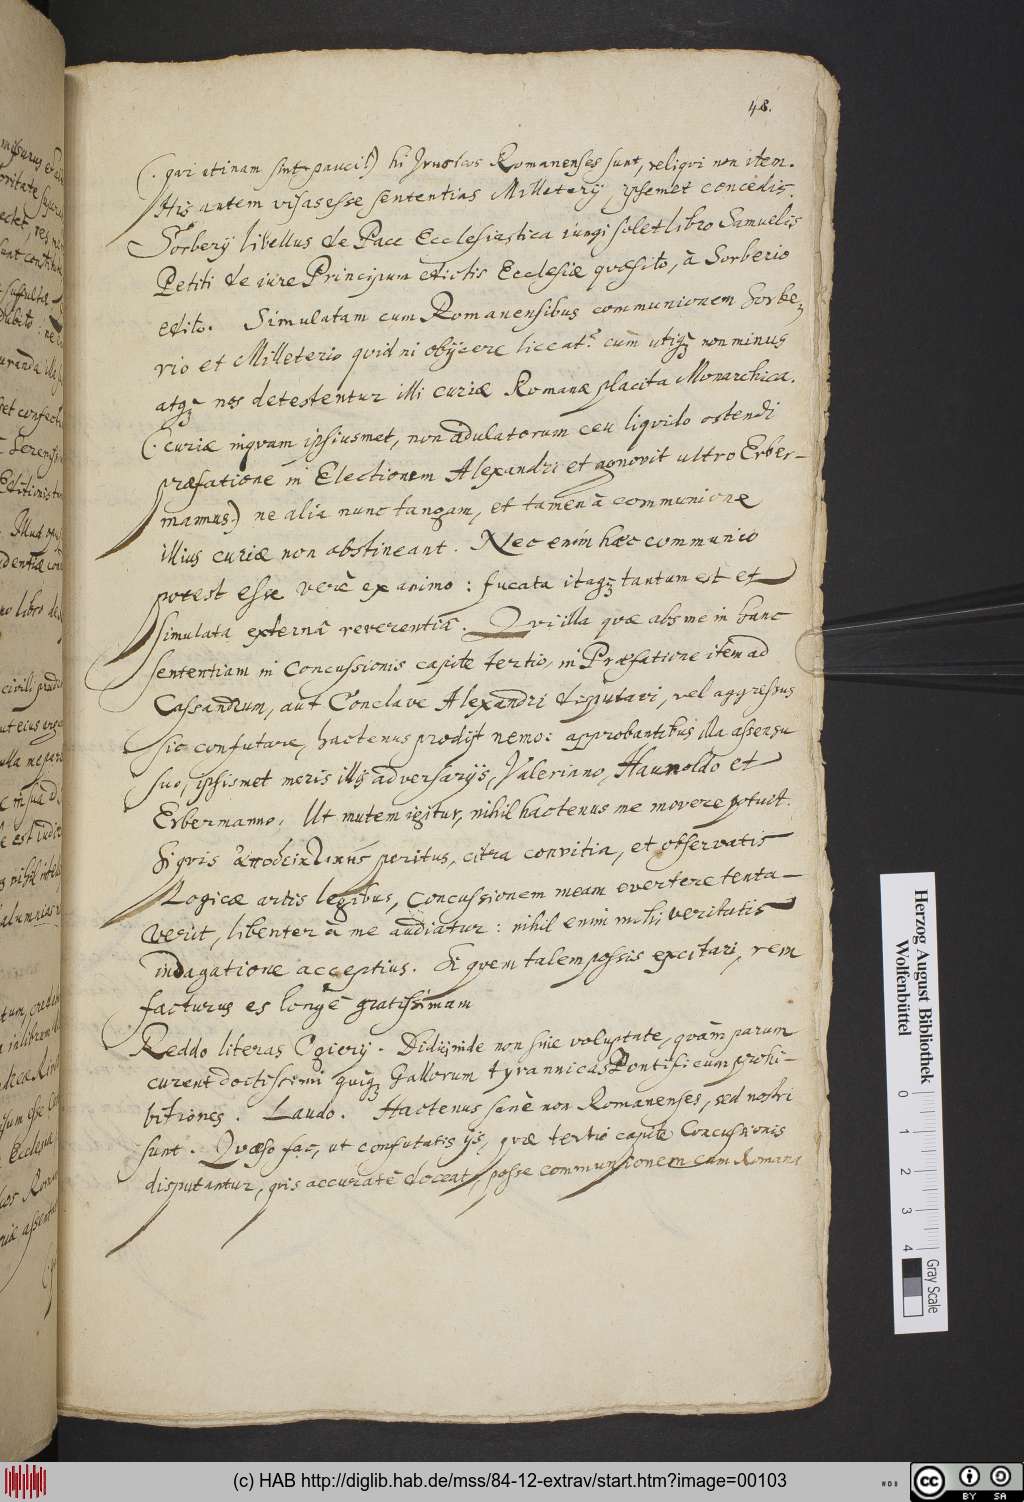 48.
(. qvi utinam sint pauci!) hi Romanenses sunt, reliqvi non item.
His autem visas esse sententias Milleterij ipsemet concedis.
Sorberij libellus de Pace Ecclesiastica iungi solet libro Samuelis
Petiti de iure Principum edictis Ecclesiæ qvæsito, à Sorberio
edito. Simulatam cum Romanensibus communionem Sorbe,
rio et Milleterio qvid ni obijcere liceat? cum utiqꝫ non minus
atqꝫ nos detestentur illi curiæ Romanæ placita Monarchica.
(. curiæ inqvam ipsiusmet, non adulatorum ceu liqvido ostendi
præfatione in Electionem Alexandri et agnovit ultro Erber-
mannus.) ne alia nunc tangam, et tamen à communione
illius curiæ non abstineant. Nec enim hæc communio
potest esse verè ex animo: fucata itaqꝫ tantum est et
simulata externâ reverentiâ. Qvi illa qvæ abs me in hanc
sententiam in Concussionis capite tertio, in Præfatione item ad
Cassandrum, aut Conclave Alexandri disputavi, vel aggressus
sit confutare, hactenus prodijt nemo: approbantibus illa assensu
suo, ipsismet meris illis adversarijs, Valeriano, Haunoldo et
Erbermanno. Ut mutem igitur, nihil hactenus me movere potuit.
Si qvis peritus, citra convitia, et observatis
Logicæ artis legibus, Concussionem meam evertere tenta-
verit, libenter à me audiatur: nihil enim mihi veritatis
indagatione acceptius. Si qvem talem possis excitari, rem
facturus es longè gratissimam
Reddo literas Ogierij. Didici inde non sine voluptate, qvàm parum
curent doctissimi qviqꝫ Gallorum tyrannicas Pontificum prohi-
bitiones. Laudo. Hactenus sanè non Romanenses, sed nostri
sunt. Qvæso fac, ut confutatis ijs, qvæ tertio capite Concussionis
disputantur, qvis accuratè doceat, posse communionem cum Romana
Herzog August Bibliothek
Wolfenbüttel
0 1 2 3 4
Gray Scale
(c) HAB http://diglib.hab.de/mss/84-12-extrav/start.htm?image=00103
cc BY SA